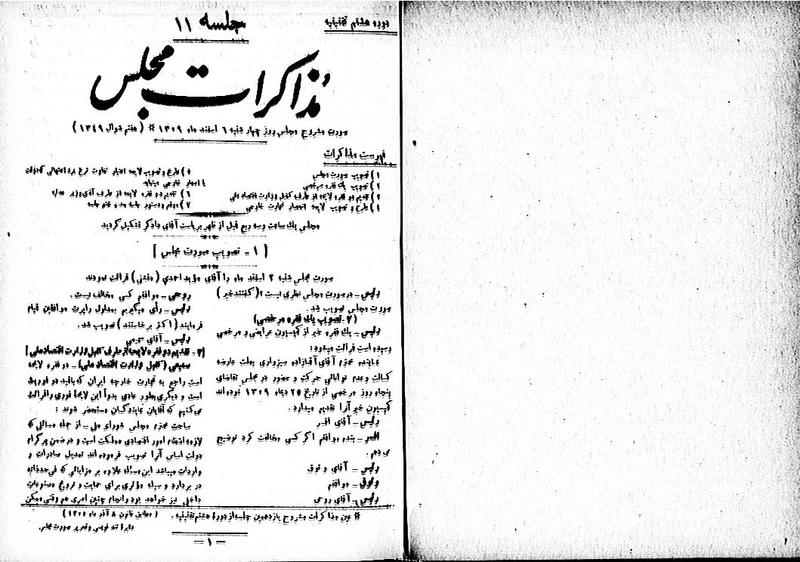 دوره هشتم تقنینیه
جلسه ۱۱
مذاکرات مجلس
صورت مشروح مجلس روز چهار شنبه ۶ اسفند ماه ۱۳۰۹ * ( هفتم شوال ۱۳۴۹ )
فهرست مذاکرات
۱ ) تصویب صورت مجلس
۲ ) تصویب یک فقره مرخصی
۳ ) تقدیم دو فقره لایحه از طرف کفیل وزارت اقتصاد ملی
۴ ) طرح و تصویب لایحه انحصار تجارت خارجی
۵ ) طرح و تصویب لایحه اعتبار تفاوت نرخ
۶ ) تقدیم دو فقره لایحه از طرف آقای وزیر عدلیه
۷ ) موقع و دستور جلسه بعد ـ ختم جلسه
مجلس یک ساعت و سه ربع قبل از ظهر بریاست آقای دادگر تشکیل گردید
[ ۱ ـ تصویب صورت مجلس ]
صورت مجلس شنبه ۲ اسفند ماه را آقای مؤید احمدی ( منشی ) قرائت نمودند
رئیس ـ در صورت مجلس نظری نیست ؟ ( گفتند خیر )
صورت مجلس تصویب شد.
( ۲ ـ تصویب یک فقره مرخصی )
رئیس ـ یک فقره خبر از کمیسیون عرایض و مرخصی
رسیده است قرائت میشود :
نماینده محترم آقای آقازاده سبزواری بعلت عارضه
کسالت و عدم توانائی حرکت و حضور در مجلس تقاضای
پنجاه روز مرخصی از تاریخ ۲۵ دیماه ۱۳۰۹ نموده اند
کمیسیون خبر آنرا تقدیم میدارد .
رئیس ـ آقای افسر
افسر ـ بنده موافقم اگر کسی مخالفت کرد توضیح
می دهم .
رئیس ـ آقای وثوق
وثوق ـ موافقم
رئیس ـ آقای روحی
روحی ـ موافقم کسی مخالف نیست .
رئیس ـ رأی میگیریم بمدلول راپرت موافقین قیام
فرمایند ( اکثر برخاستند ) تصویب شد .
رئیس ـ آقای سمیعی
[ ۳ ـ تقدیم دو فقره لایحه از طرف کفیل وزارت اقتصاد ملی ]
سمیعی ( کفیل وزارت اقتصاد ملی ) ـ دو فقره لایحه
است راجع به تجارت خارجه ایران که باید در فوریت
است و دیگری بطور عادی بدواً این لایحه فوری را قرائت
می کنیم که آقایان نمایندگان مستحضر شوند :
ساحت محترم مجلس شورای ملی ـ از جمله مسائلی که
لازمه انتظام امور اقتصادی مملکت است و در ضمن پرگرام
دولت اساس آنرا تصویب فرموده اند تعدیل صادرات و
واردات میباشد این مسئله علاوه بر مزایائی که فی حد ذاته
در بردارد و سیله مؤثری برای حمایت و ترویج مصنوعات
داخلی نیز خواهد بود و انجام چنین امری هم وقتی ممکن
* عین مذاکرات مشروح یازدهمین جلسه از دوره هشتم تقنینیه . ( مطابق قانون ۸ آذر ماه ۱۳۰۶ )
دایره تند نویسی و تحریر صورت مجلس
ـ ۱ ـ